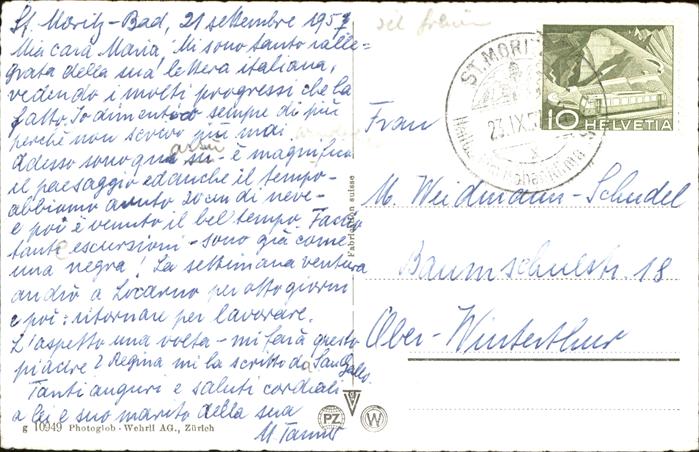 St. Moritz-Bad, 21 settembre 1957
Mia cara Maria, Mi sono tanto ralle=
grata della sua lettera italiana,
vedendo i molti progressi che ha
fatto. Io dimentico sempre di più
perchè non scrivo più mai.
Adesso sono qua su - è magnifico
il paesaggio ed anche il tempo -
abbiamo avuto 20 cm di neve -
e poi è venuto il bel tempo. Faccio
tante escursioni - sono già come
una negra! La settimana ventura
andrò a Locarno per otto giorni
e poi: ritornare per lavorare.
L'aspetto una volta - mi farà questo
piacere? Regina mi ha scritto da San Gallo.
Tanti auguri e saluti cordiali
a lei e suo marito della sua
M. Tanner
g 10949 Photoglob - Wehrli AG., Zürich
Fabrication suisse
PZ W
ST. MORITZ
23. IX. 5
10 HELVETIA
Frau
M. Weidmann-Schudel
Baumschulestr. 18
Ober-Winterthur